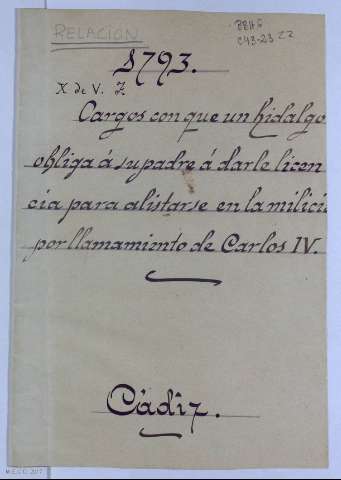 RELACION
BBHG
C43-23 22
1793.
X de V. Z
Cargos con que un hidalgo
obliga á su padre á darle licen
cia para alistarse en la milicia
por llamamiento de Carlos IV.
Cádiz.